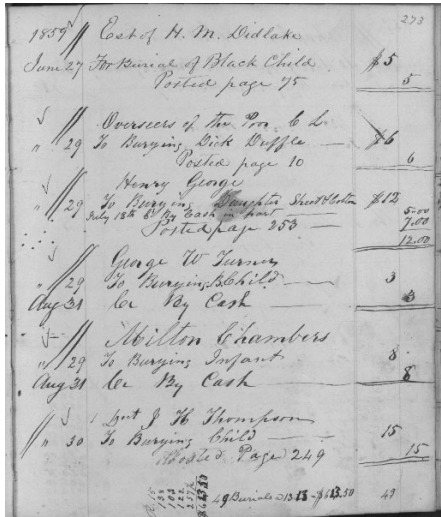 273
1859 Est of H. M. Didlake
June 27 For Burial of Black Child $5
Posted page 75 5
Overseers of the Poor C L
" 29 To Burying Dick Duffle — $6
Posted page 10 6
Henry George
" 29 To Burying Daughter Street & Colton $12
July 18th Cr By Cash in part — 5.00
Posted page 253 — 7.00
12.00
George W Turner
" 29 To Burying B. Child — 3
Aug 31 Cr By Cash — 3
Milton Chambers
" 29 To Burying Infant 8
Aug 31 Cr By Cash — 8
J H Thompson
" 30 To Burying Child — 15
Posted Page 249 15
49 Burials 13 13 - $613.50 49